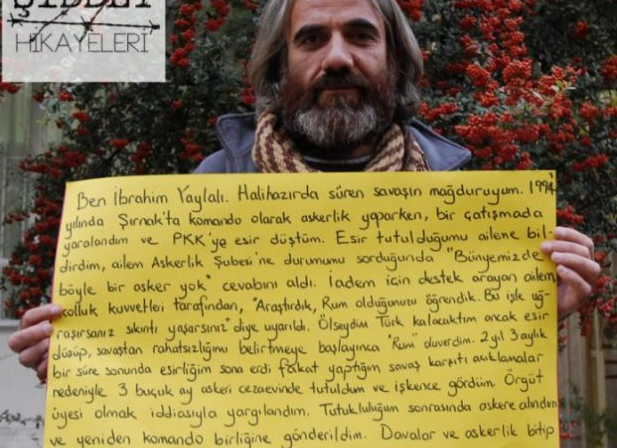 ŞİDDET
HİKAYELERİ
Ben İbrahim Yaylalı. Halihazırda süren savaşın mağduruyum. 1994
yılında Şırnak'ta komando olarak askerlik yaparken, bir çatışmada
yaralandım ve PKK'ye esir düştüm. Esir tutulduğumu aileme bil-
dirdim, ailem Askerlik Şubesi'ne durumumu sorduğunda "Bünyemizde
böyle bir asker yok" cevabını aldı. İadem için destek arayan ailem,
kolluk kuvvetleri tarafından, "Araştırdık, Rum olduğunuzu öğrendik. Bu işle uğ-
raşırsanız sıkıntı yaşarsınız" diye uyarıldı. Ölseydim Türk kalacaktım ancak esir
düşüp, savaştan rahatsızlığımı belirtmeye başlayınca "Rum" oluverdim. 2 yıl 3 aylık
bir süre sonunda esirliğim sona erdi fakat yaptığım savaş karşıtı açıklamalar
nedeniyle 3 buçuk ay askeri cezaevinde tutuldum ve işkence gördüm. Örgüt
üyesi olmak iddiasıyla yargılandım. Tutukluluğum sonrasında askere alındım
ve yeniden komando birliğine gönderildim. Davalar ve askerlik bitip